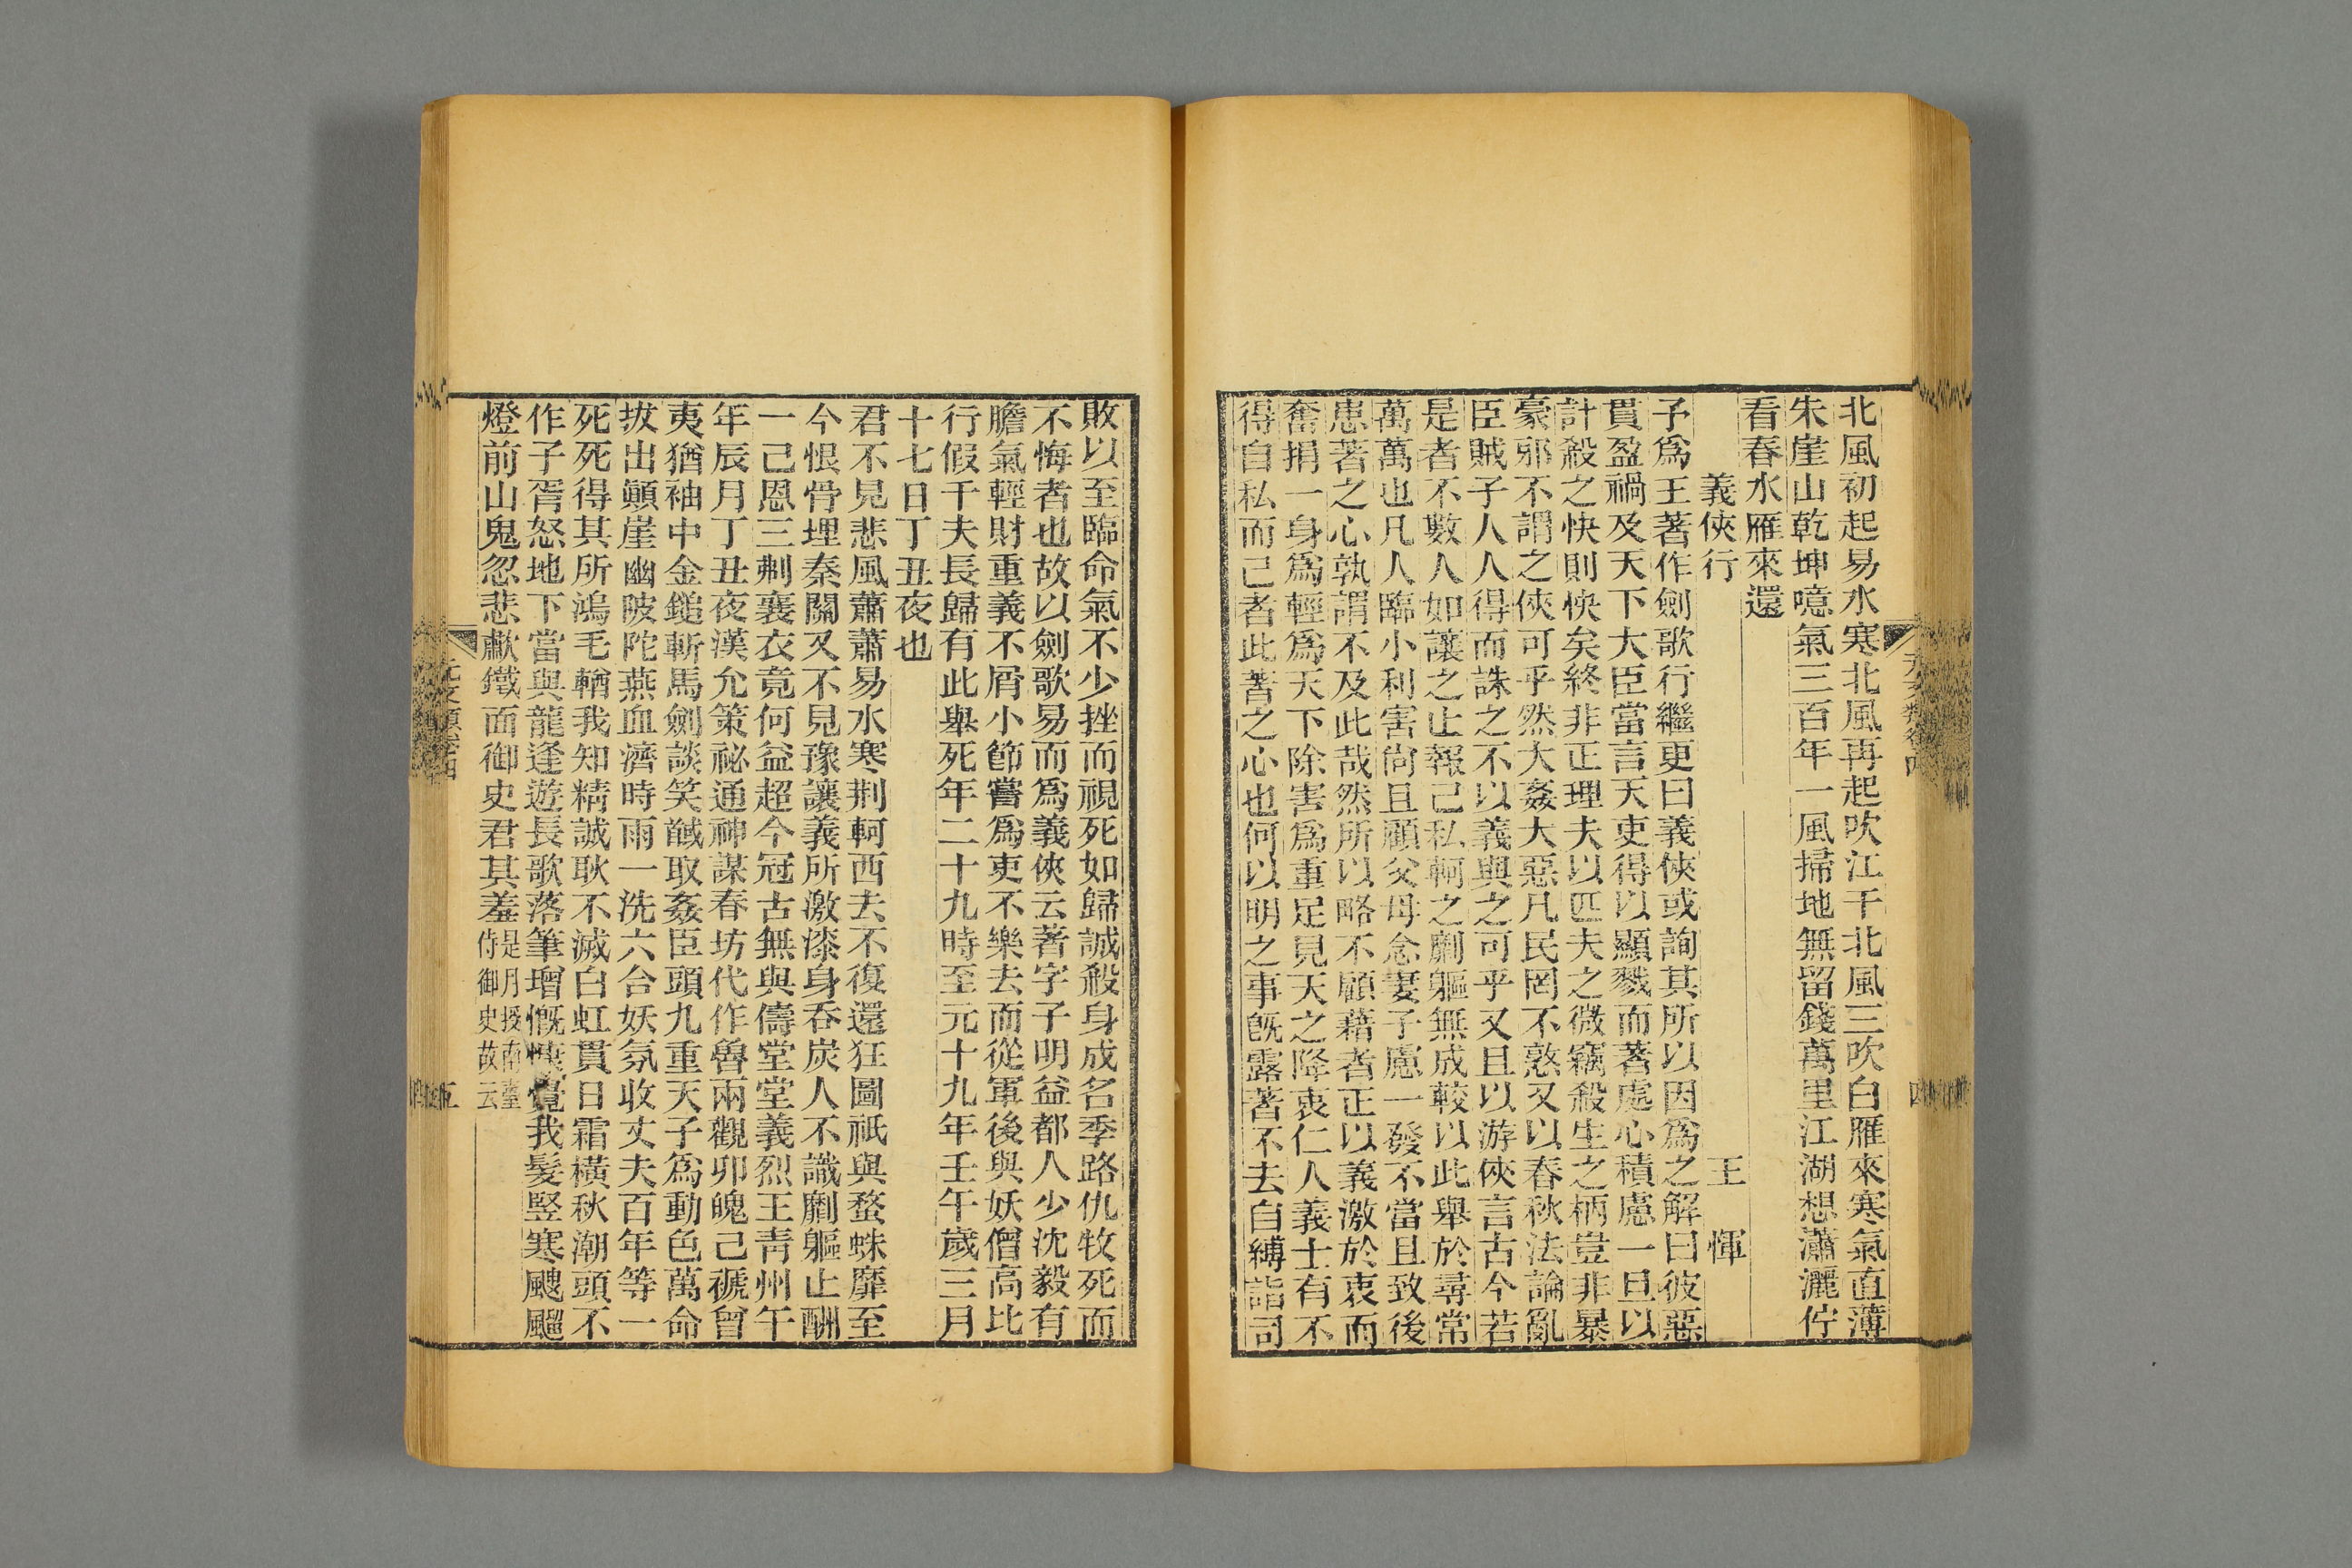 北風初起易水寒北風再起吹江干北風三吹白雁來寒氣直薄
朱崖山乾坤噫氣三百年一風掃地無留錢萬里江湖想瀟灑佇
看春水雁來還
義俠行 王惲
予爲王著作劍歌行繼更曰義俠或詢其所以因爲之解曰彼惡
貫盈禍及天下大臣當言天吏得以顯戮而著處心積慮一旦以
計殺之快則快矣終非正理夫以匹夫之微竊殺生之柄豈非暴
豪邪不謂之俠可乎然大姦大惡凡民罔不憝又以春秋法論亂
臣賊子人人得而誅之不以義與之可乎又且以游俠言古今若
是者不數人如讓之止報己私軻之劘軀無成較以此舉於尋常
萬萬也凡人臨小利害尙且顧父母念妻子慮一發不當且致後
患著之心孰謂不及此哉然所以略不顧藉者正以義激於衷而
奮捐一身爲輕爲天下除害爲重足見天之降衷仁人義士有不
得自私而已者此著之心也何以明之事旣露著不去自縛詣司
敗以至臨命氣不少挫而視死如歸誠殺身成名季路仇牧死而
不悔者也故以劍歌易而爲義俠云著字子明益都人少沈毅有
膽氣輕財重義不屑小節嘗爲吏不樂去而從軍後與妖僧高比
行假千夫長歸有此舉死年二十九時至元十九年壬午歲三月
十七日丁丑夜也
君不見悲風蕭蕭易水寒荆軻西去不復還狂圖祇與蝥蛛靡至
今恨骨埋秦關又不見豫讓義所激漆身呑炭人不識劘軀止酬
一己恩三刜襄衣竟何益超今冠古無與儔堂堂義烈王青州午
年辰月丁丑夜漢允策祕通神謀春坊代作魯兩觀卯魄已禠曾
夷猶袖中金鎚斬馬劍談笑馘取姦臣頭九重天子爲動色萬命
拔出顚崖幽陂陀燕血濟時雨一洗六合妖氛收丈夫百年等一
死死得其所鴻毛輶我知精誠耿不滅白虹貫日霜橫秋潮頭不
作子胥怒地下當與龍逢遊長歌落筆增慨慷覺我髮竪寒颼飀
燈前山鬼忽悲歗鐵面御史君其羞是月授南臺侍御史故云
元文類卷四
四
元文類卷四
五